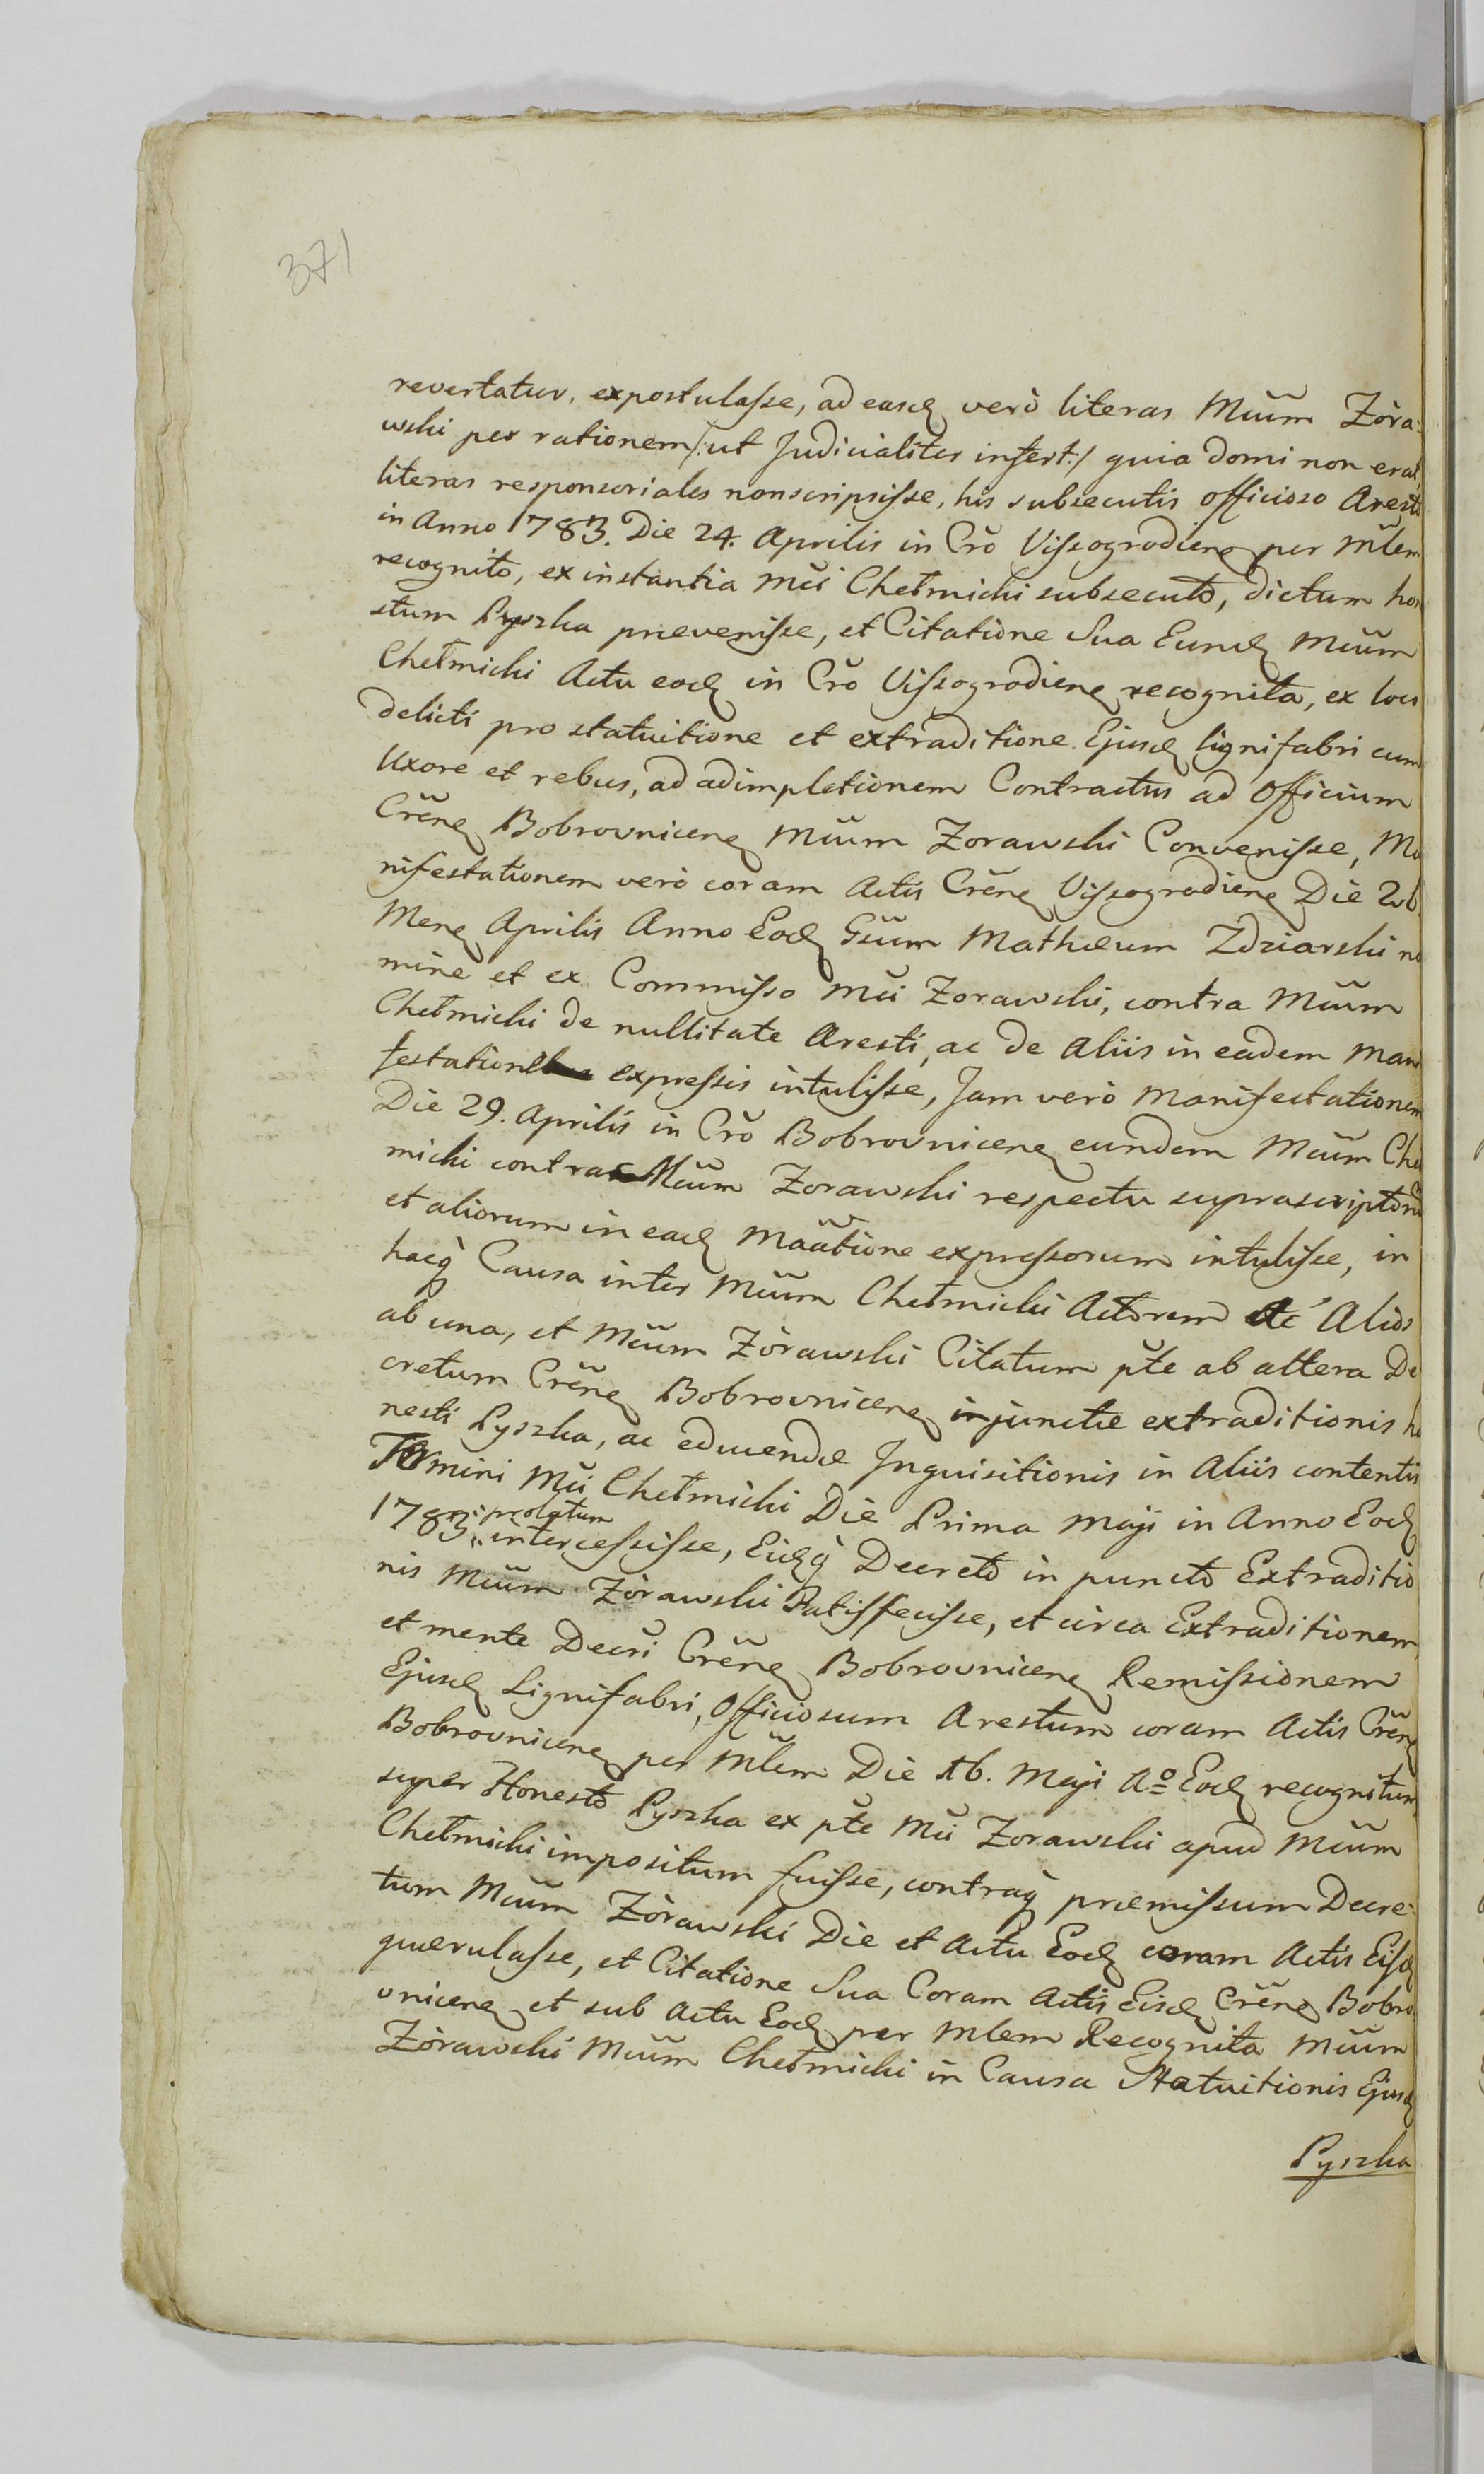 371
revertatur, expostulasse, ad easd verò literas Mũum Zòra:
wski per rationem /:ut Judicialiter infert:/ quia domi non erat,
literas responsoriales nonscripsisse, his subsecutis officioso Aresto
in Anno 1783. Die 24. Aprilis in Crõ Vissogrodieñ per Mlem
recognito, ex instantia Mĩi Chełmicki subsecuto, dictum hon
stum Pyszka prævenisse, et Citatione Sua Eund Mũum
Chełmicki Actu eod in Crõ Vissogrodieñ recognita, ex loco
delicti pro statuitione et extraditione Ejusd lignifabri cum
Uxore et rebus, ad adimpletionem Contractus ad Officium
Crẽñ Bobrovniceñ Mũum Zorawski Convenisse, Ma
nifestationem verò coram Actis Crẽñ Vissogrodieñ Die 26.
Meñ Aprilis Anno Eod Gsũum Mathæum Zdziarski no
mine et ex Commisso Mĩi Zorawski, contra Mũum
Chełmicki de nullitate Aresti, ac de Aliis in eadem Mani
festatione expressis intulisse, Jam verò Manifestationem
Die 29. Aprilis in Crõ Bobrovniceñ eundem Mũum Cheł
micki contra Mũum Zorawski respectu suprascriptorũ
et aliorum in ead Mããtione expressorum intulisse, in
hacq̀ Causa inter Mũum Chełmicki Actorem etc Alios
ab una, et Mũum Zòrawski Citatum pte ab altera De
cretum Crẽñ Bobrovniceñ injunctæ extraditionis ho
nesti Pyszka, ac educendæ Inquisitionis in Aliis contentis
Termini Mĩi Chełmicki Die Prima Maji in Anno Eod
1783: prolatum intercessisse, Eidq̀ Decreto in puncto Extraditio
nis Mũum Zòrawski Satisfecisse, et circa Extraditionem,
et mente Decri Crẽñ Bobrovniceñ Remissionem
Ejusd Lignifabri, Officiosum Arestum coram Actis Crẽñ
Bobrovniceñ per Mlem Die 16. Maji Aº Eod recognitum
super Honesto Pyszka ex pte Mĩi Zorawski apud Mũum
Chełmicki impositum fuisse, contraq̀ præmissum Decre:
tum Mũum Zòrawski Die et Actu Eod coram Actis Eisd
quærulasse, et Citatione Sua Coram Actis Eisd Crẽñ Bobro
vniceñ et sub Actu Eod per Mlem Recognita Mũum
Zòrawski Mũum Chełmicki in Causa Statuitionis Ejusd
Pyszka